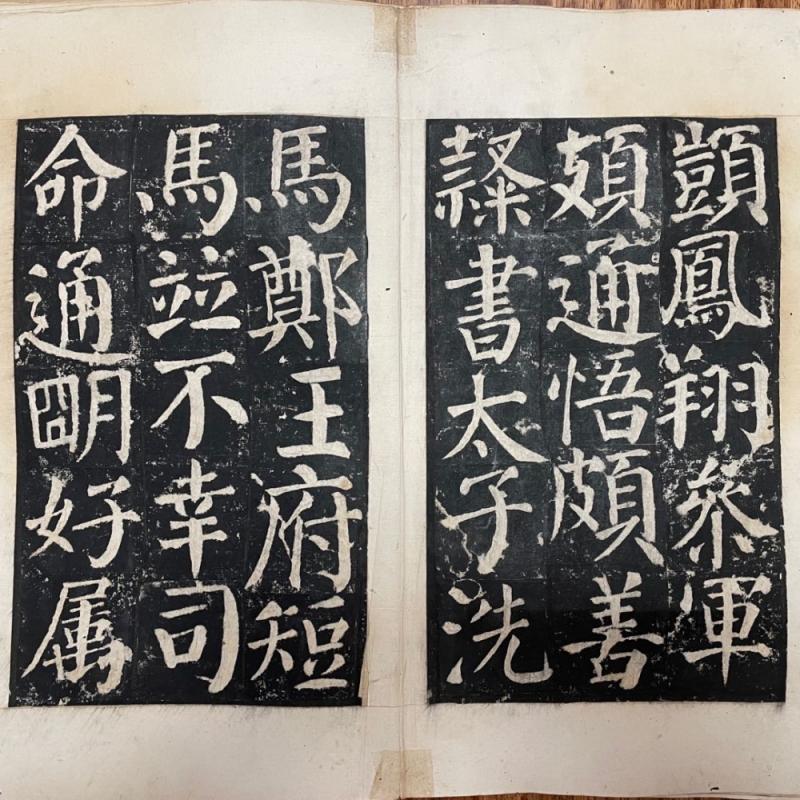 顗鳳翔叅軍
頍通悟頗善
隸書太子洗
馬鄭王府短
馬並不幸司
命通朙好属